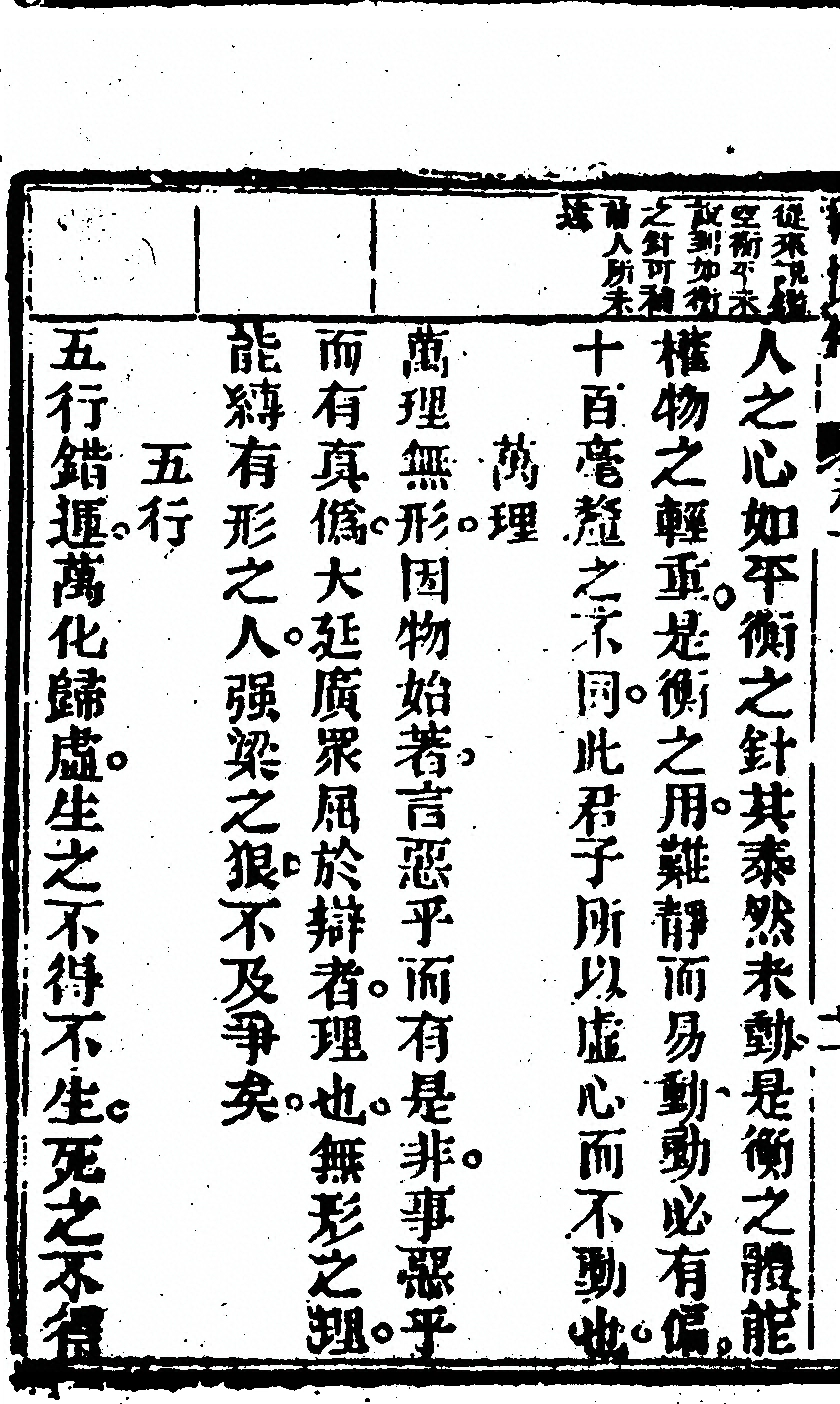 從來說鑑
空衡平未
說到如衡
之針可補
前人所未
人之心如平衡之針其泰然未動是衡之體能
權物之輕重是衡之用難靜而易動動必有偏
十百毫釐之不同此君子所以虛心而不動也
萬理
萬理無形因物始著言惡乎而有是非事惡乎
而有真僞大延廣眾屈於辯者理也無形之理
能縛有形之人强梁之狠不及爭矣
五行
五行錯運萬化歸虛生之不得不生死之不得